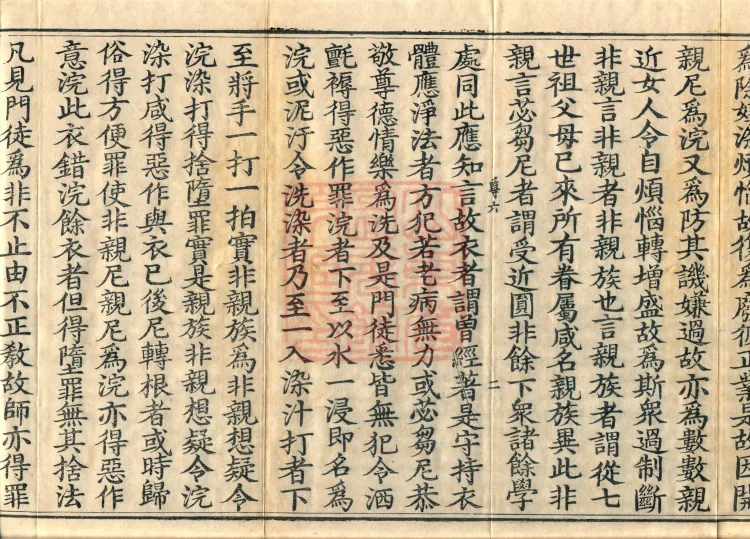 正業是故因開
親尼為浣又為防其譏嫌過故亦為數數親
近女人令自煩惱轉增盛故為斯眾過制斷
非親言非親者非親族也言親族者謂從七
世祖父母已來所有眷屬咸名親族異此非
親言苾芻尼者謂受近圓非餘下眾諸餘學
尊六 二
處同此應知言故衣者謂曾經著是守持衣
體應淨法者方犯若老病無力或苾芻尼恭
敬尊德情樂為洗及是門徒悉皆無犯令洒
氈褥得惡作罪浣者下至以水一浸即名為
浣或泥汙令洗染者乃至一入染汁打者下
至將手一打一拍實非親族為非親想疑令
浣染打得捨墮罪實是親族非親想疑令浣
染打咸得惡作與衣已後尼轉根者或時歸
俗得方便罪使非親尼親尼為浣亦得惡作
意浣此衣錯浣餘衣者但得墮罪無其捨法
凡見門徒為非不止由不正教故師亦得罪